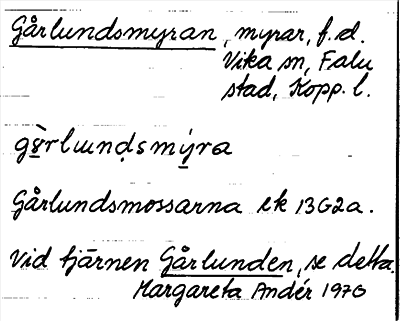 Gårlundsmyran, myrar, f.d.
Vika sn, Falu
stad, Kopp. l.
gə̀rlundsmýra
Gårlundsmossarna ek 13G2a.
Vid tjärnen Gårlunden, se detta.
Margareta Andér 1970